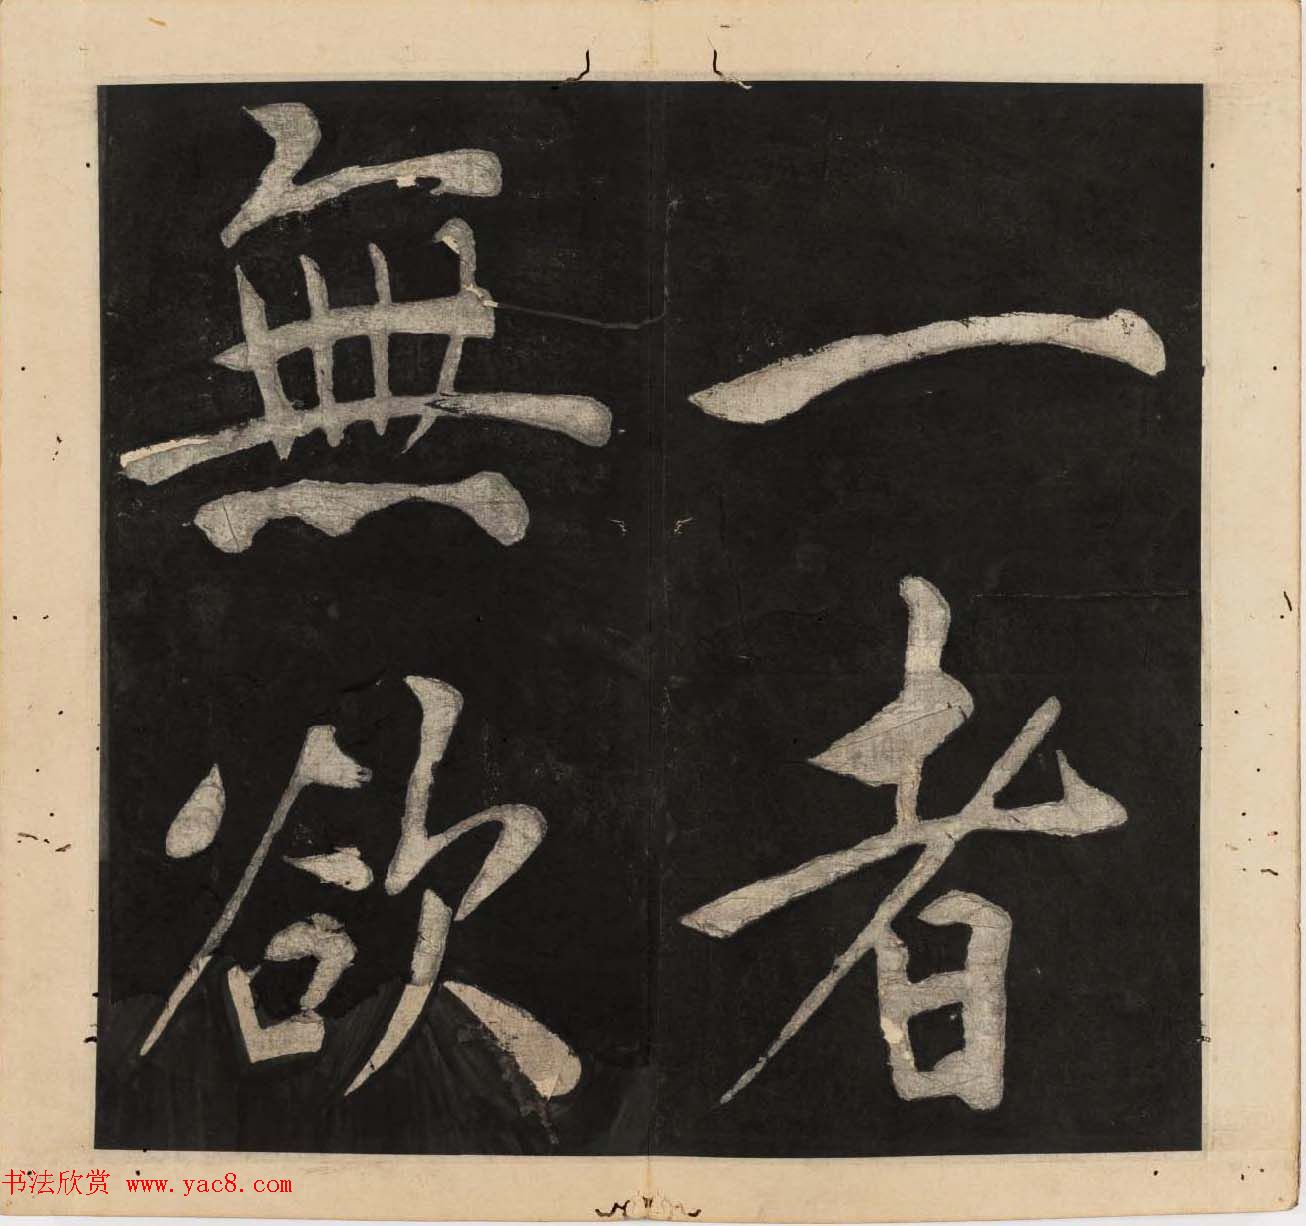 一者
無欲
书法欣赏 www.yac8.com